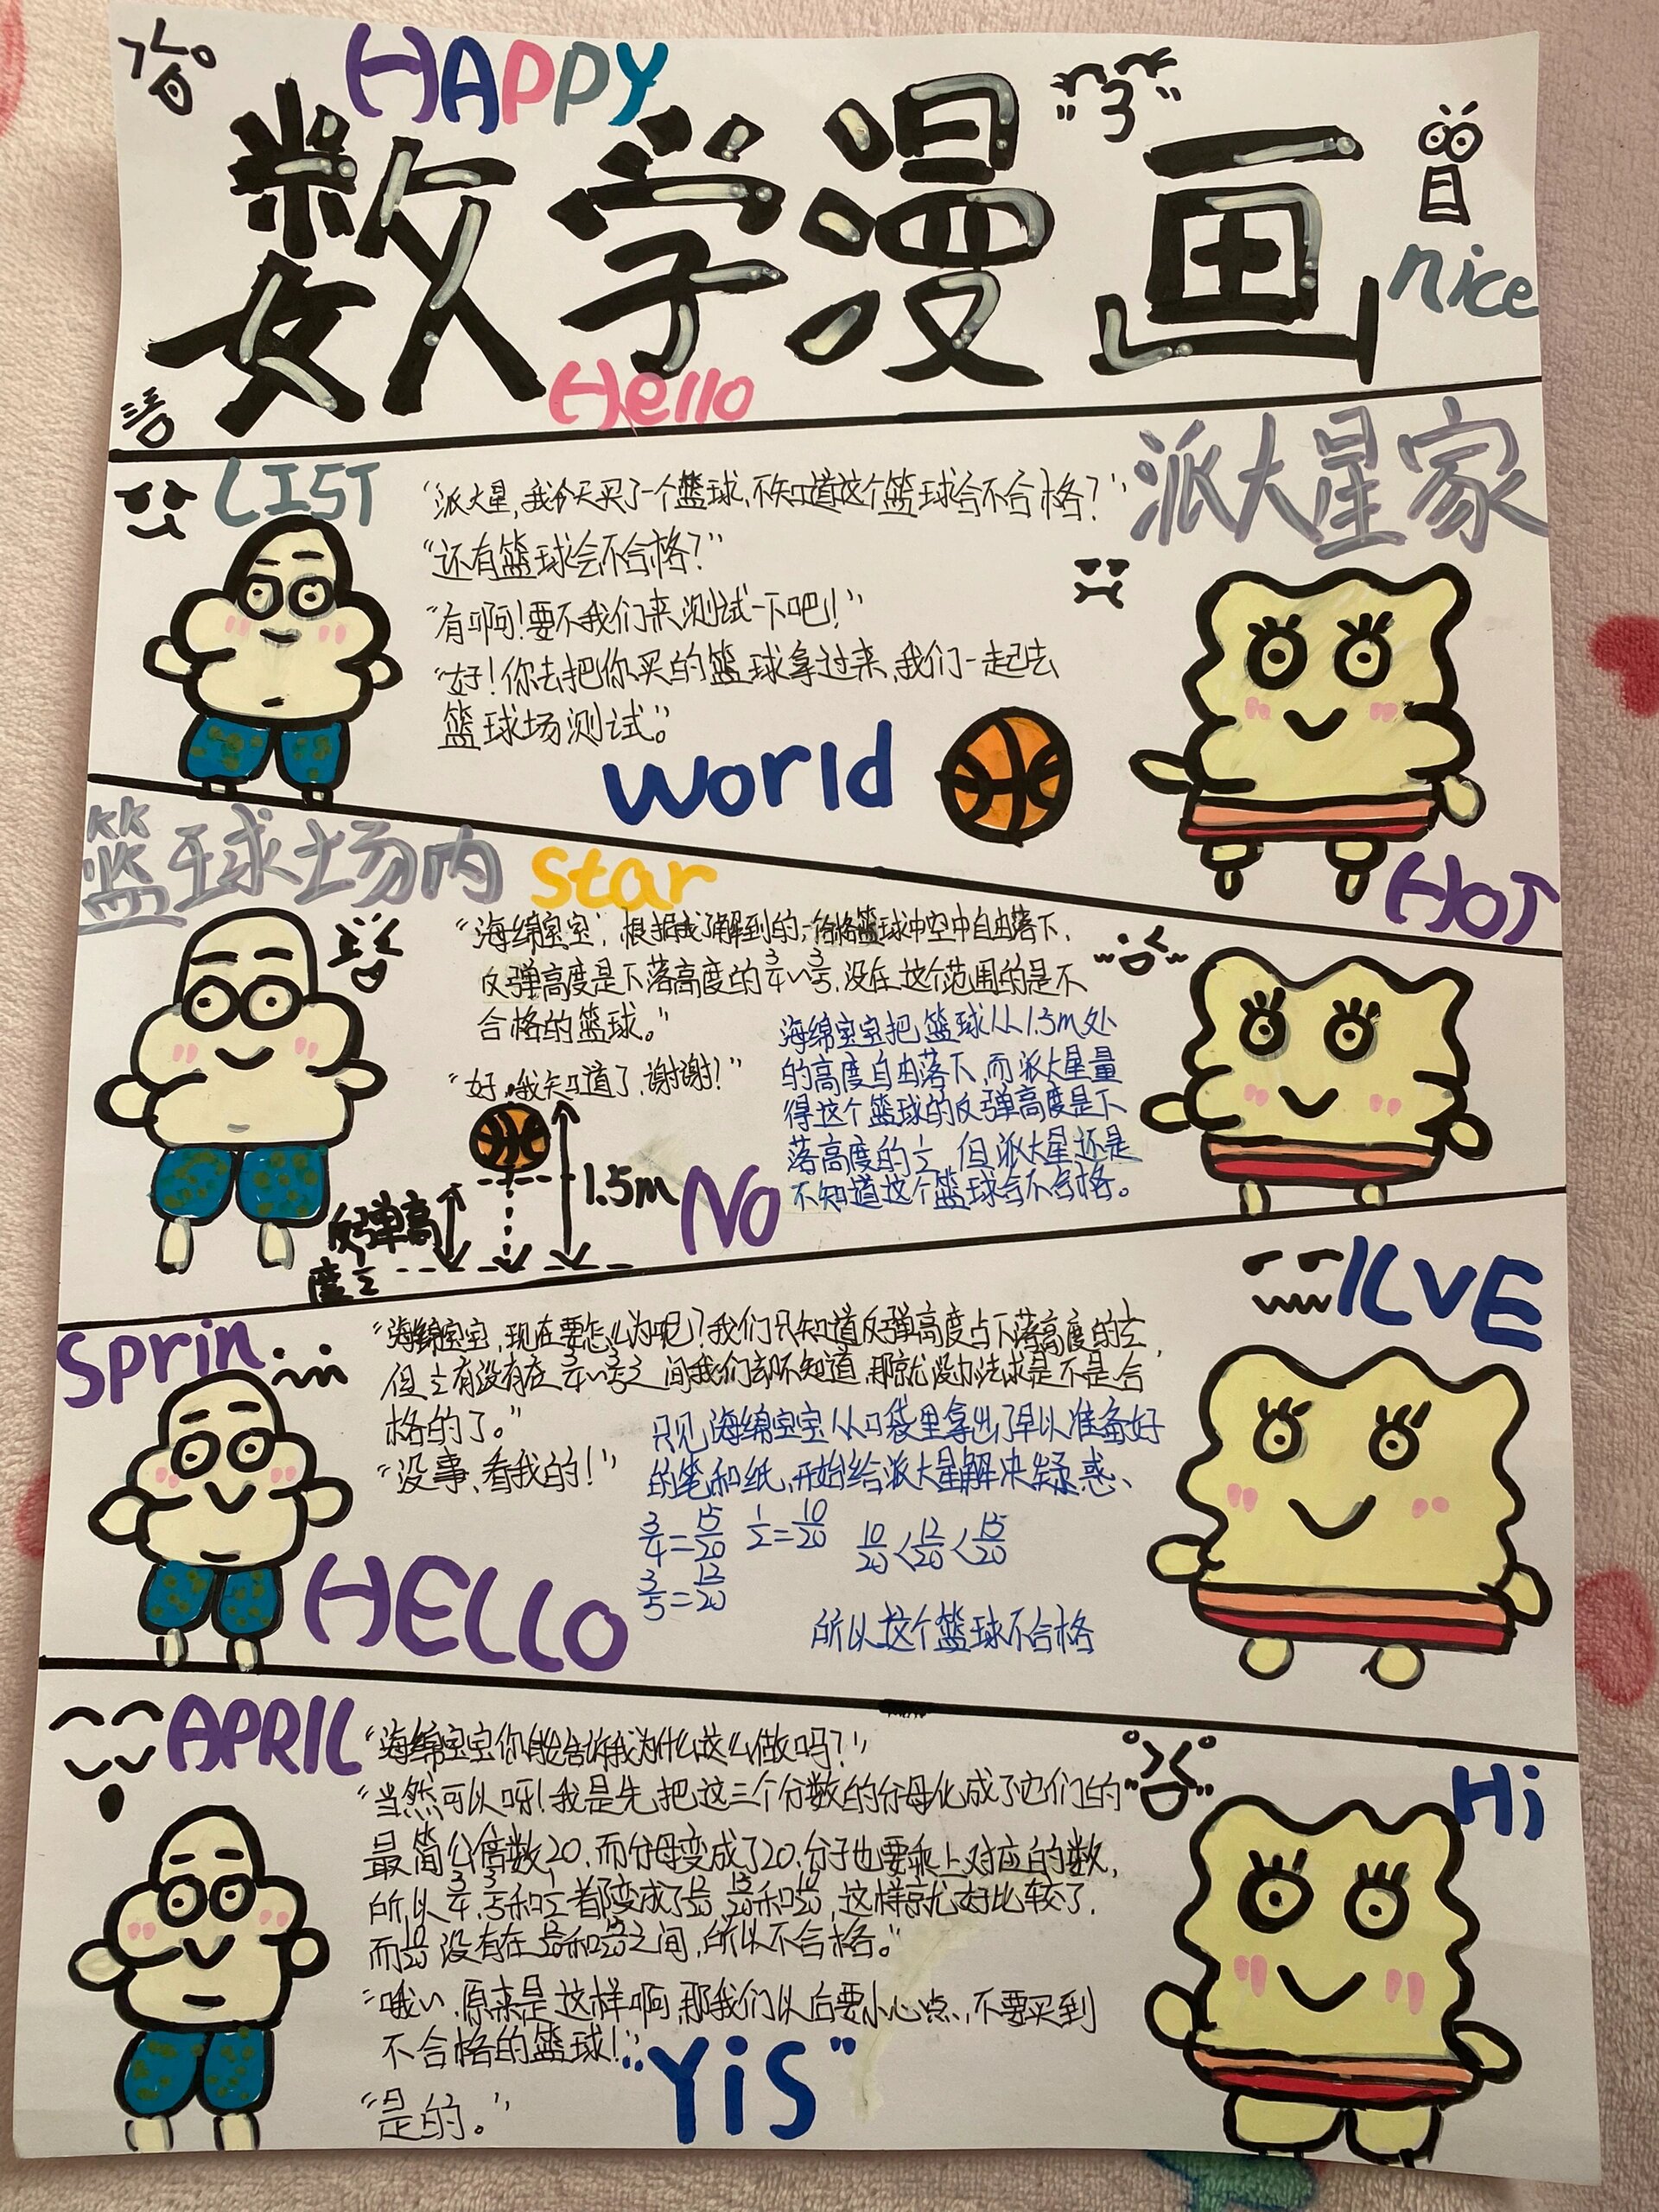 HAPPY
数学漫画
nice
Hello
LIST
派大星家
“派大星,我今天买了一个篮球,不知道这个篮球合不合格?”
“还有篮球会不合格?”
“有啊!要不我们来测试一下吧!”
“好!你去把你买的篮球拿过来,我们一起去
篮球场测试。”
World
HOT
篮球场内
star
“海绵宝宝,根据我了解到的,合格篮球中空中自由落下,
反弹高度是下落高度的3/4~3/5,没在这个范围的是不
合格的篮球。”
“好,我知道了,谢谢!”
海绵宝宝把篮球从1.5m处
的高度自由落下,而派大星量
得这个篮球的反弹高度是下
落高度的1/2,但派大星还是
不知道这个篮球合不合格。
1.5m
反弹高
度1/2
No
ILVE
Sprin
“海绵宝宝,现在要怎么办呢?我们只知道反弹高度占下落高度的1/2,
但1/2有没有在3/4~3/5之间我们却不知道,那就没办法求是不是合
格的了。”
“没事,看我的!”
只见海绵宝宝从口袋里拿出了早以准备好
的笔和纸,开始给派大星解决疑惑、
3/4=15/20 1/2=10/20 10/20<12/20<15/20
3/5=12/20
所以这个篮球不合格
HELLO
APRIL
“海绵宝宝你能告诉我为什么这么做吗?”
“当然可以呀!我是先把这三个分数的分母化成了它们的
最简公倍数20,而分母变成了20,分子也要乘上对应的数,
所以3/4,3/5和1/2都变成了15/20,12/20和10/20,这样就尤好比较了,
而10/20没有在15/20和12/20之间,所以不合格。”
“哦~,原来是这样啊,那我们以后要小心点,不要买到
不合格的篮球!”
“是的。”
“Yis”
Hi